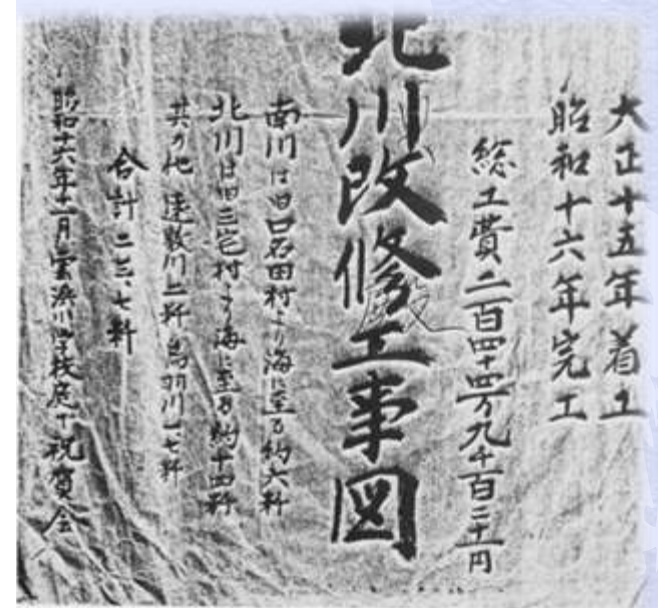 大正十五年着工
昭和十六年完工
総工費二百四十四万九千百二十一円
北川改修工事図
南川は旧口名田村より海に至る約六粁
北川は旧三宅村より海に至る約十四粁
其の他 遠敷川二粁 鳥羽川一、七粁
合計二三、七粁
昭和十六年十一月雲浜小学校庭で祝賀会